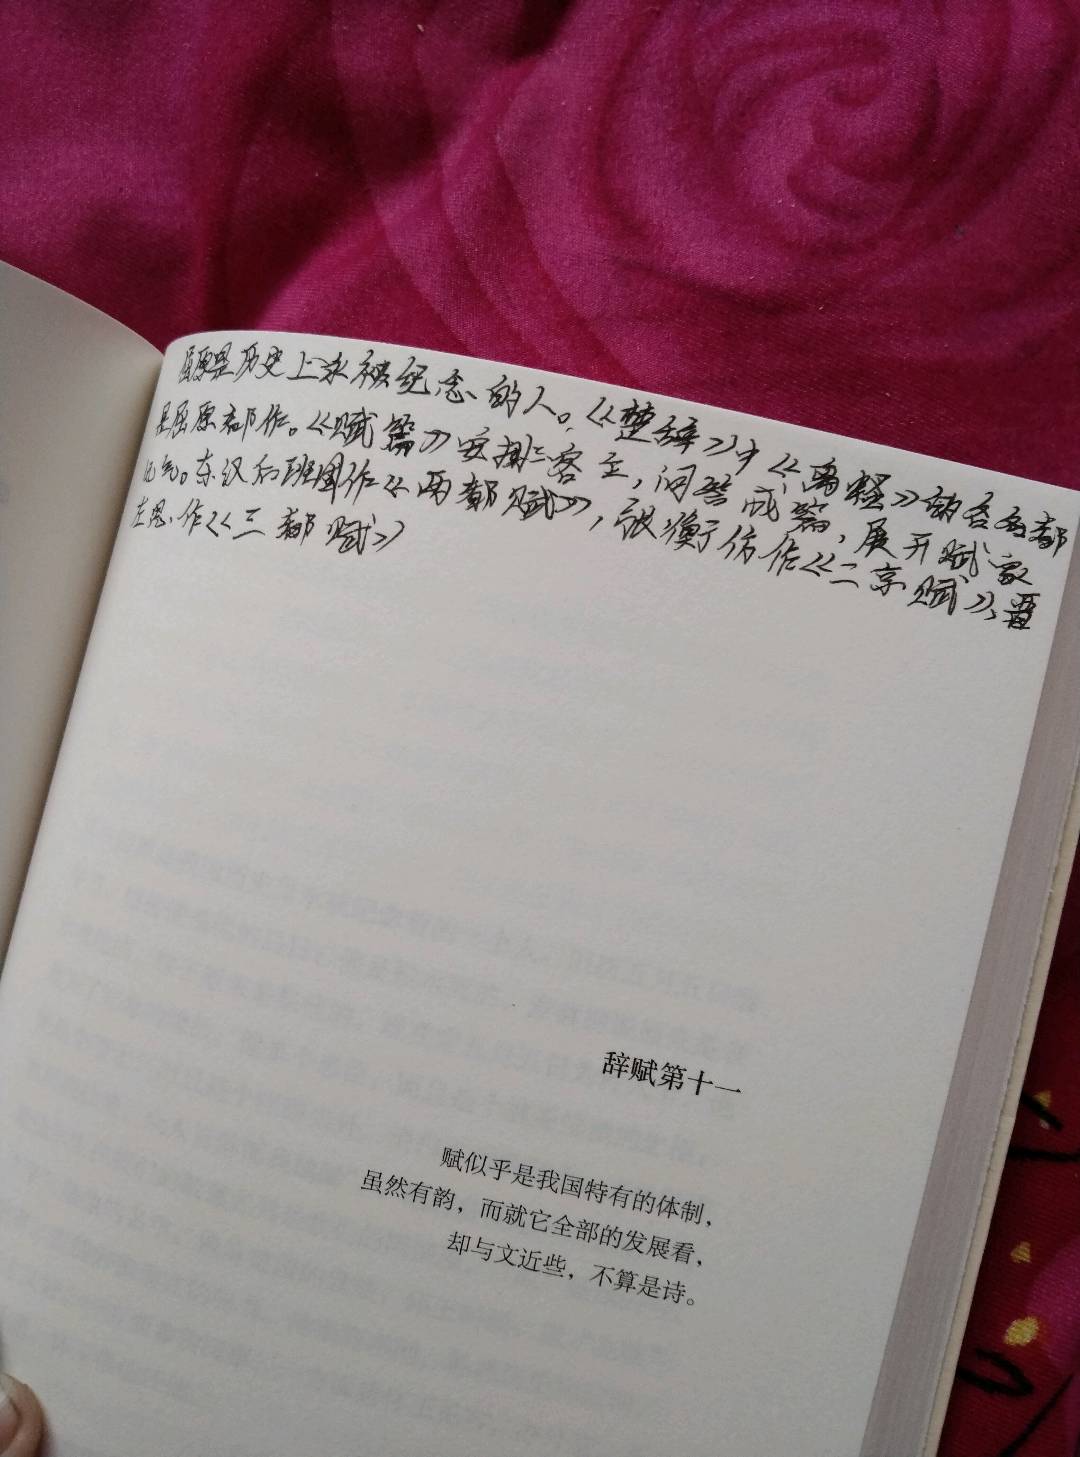 屈原是历史上永被纪念的人。《楚辞》中《离骚》
是屈原都作。《赋篇》安排三客主,问答成篇,展开赋家
。东汉后班固作《两都赋》,张衡仿作《二京赋》,晋
左思作《三都赋》
辞赋第十一
赋似乎是我国特有的体制,
虽然有韵,而就它全部的发展看,
却与文近些,不算是诗。